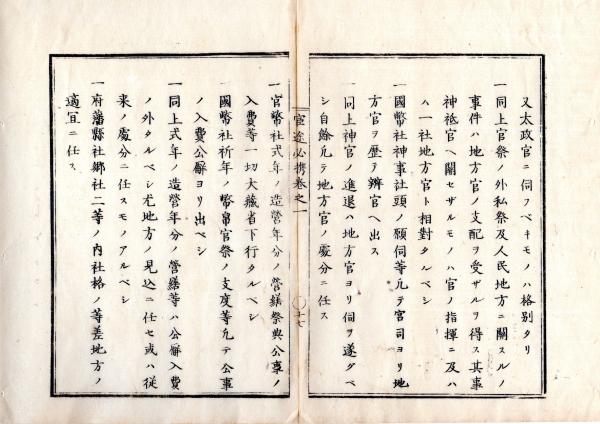 又太政官ニ伺フベキモノハ格別タリ
一同上官祭ノ外私祭及人民地方ニ關スルノ
事件ハ地方官ノ支配ヲ受ザルヲ得ス其事
神祗官ヘ關セザルモノハ官ノ指揮ニ及ハ
ハ一社地方官ト相對タルベシ
一國幣社神事社頭ノ願伺等凡テ宮司ヨリ地
方官ヲ歴ヲ辨官ヘ出ス
一同上神官ノ進退ハ地方官ヨリ伺ヲ遂グベ
シ自餘凡テ地方官ノ處分ニ任ス
官途必携巻之一
十七
一官幣社式年ノ造營年分ノ營繕祭典公事ノ
入費等一切大藏省下行タルベシ
國幣社祈年ノ幣帛官祭ノ支度等凡テ公事
ノ入費公廨ヨリ出ベシ
一同上式年ノ造營年分ノ營繕等ハ公廨入費
ノ外タルベシ尤地方ノ見込ニ任セ或ハ從
來ノ處分ニ任スモノアルベシ
一府藩縣社郷社二等ノ内社格ノ等差地方ノ
適宜ニ任ス